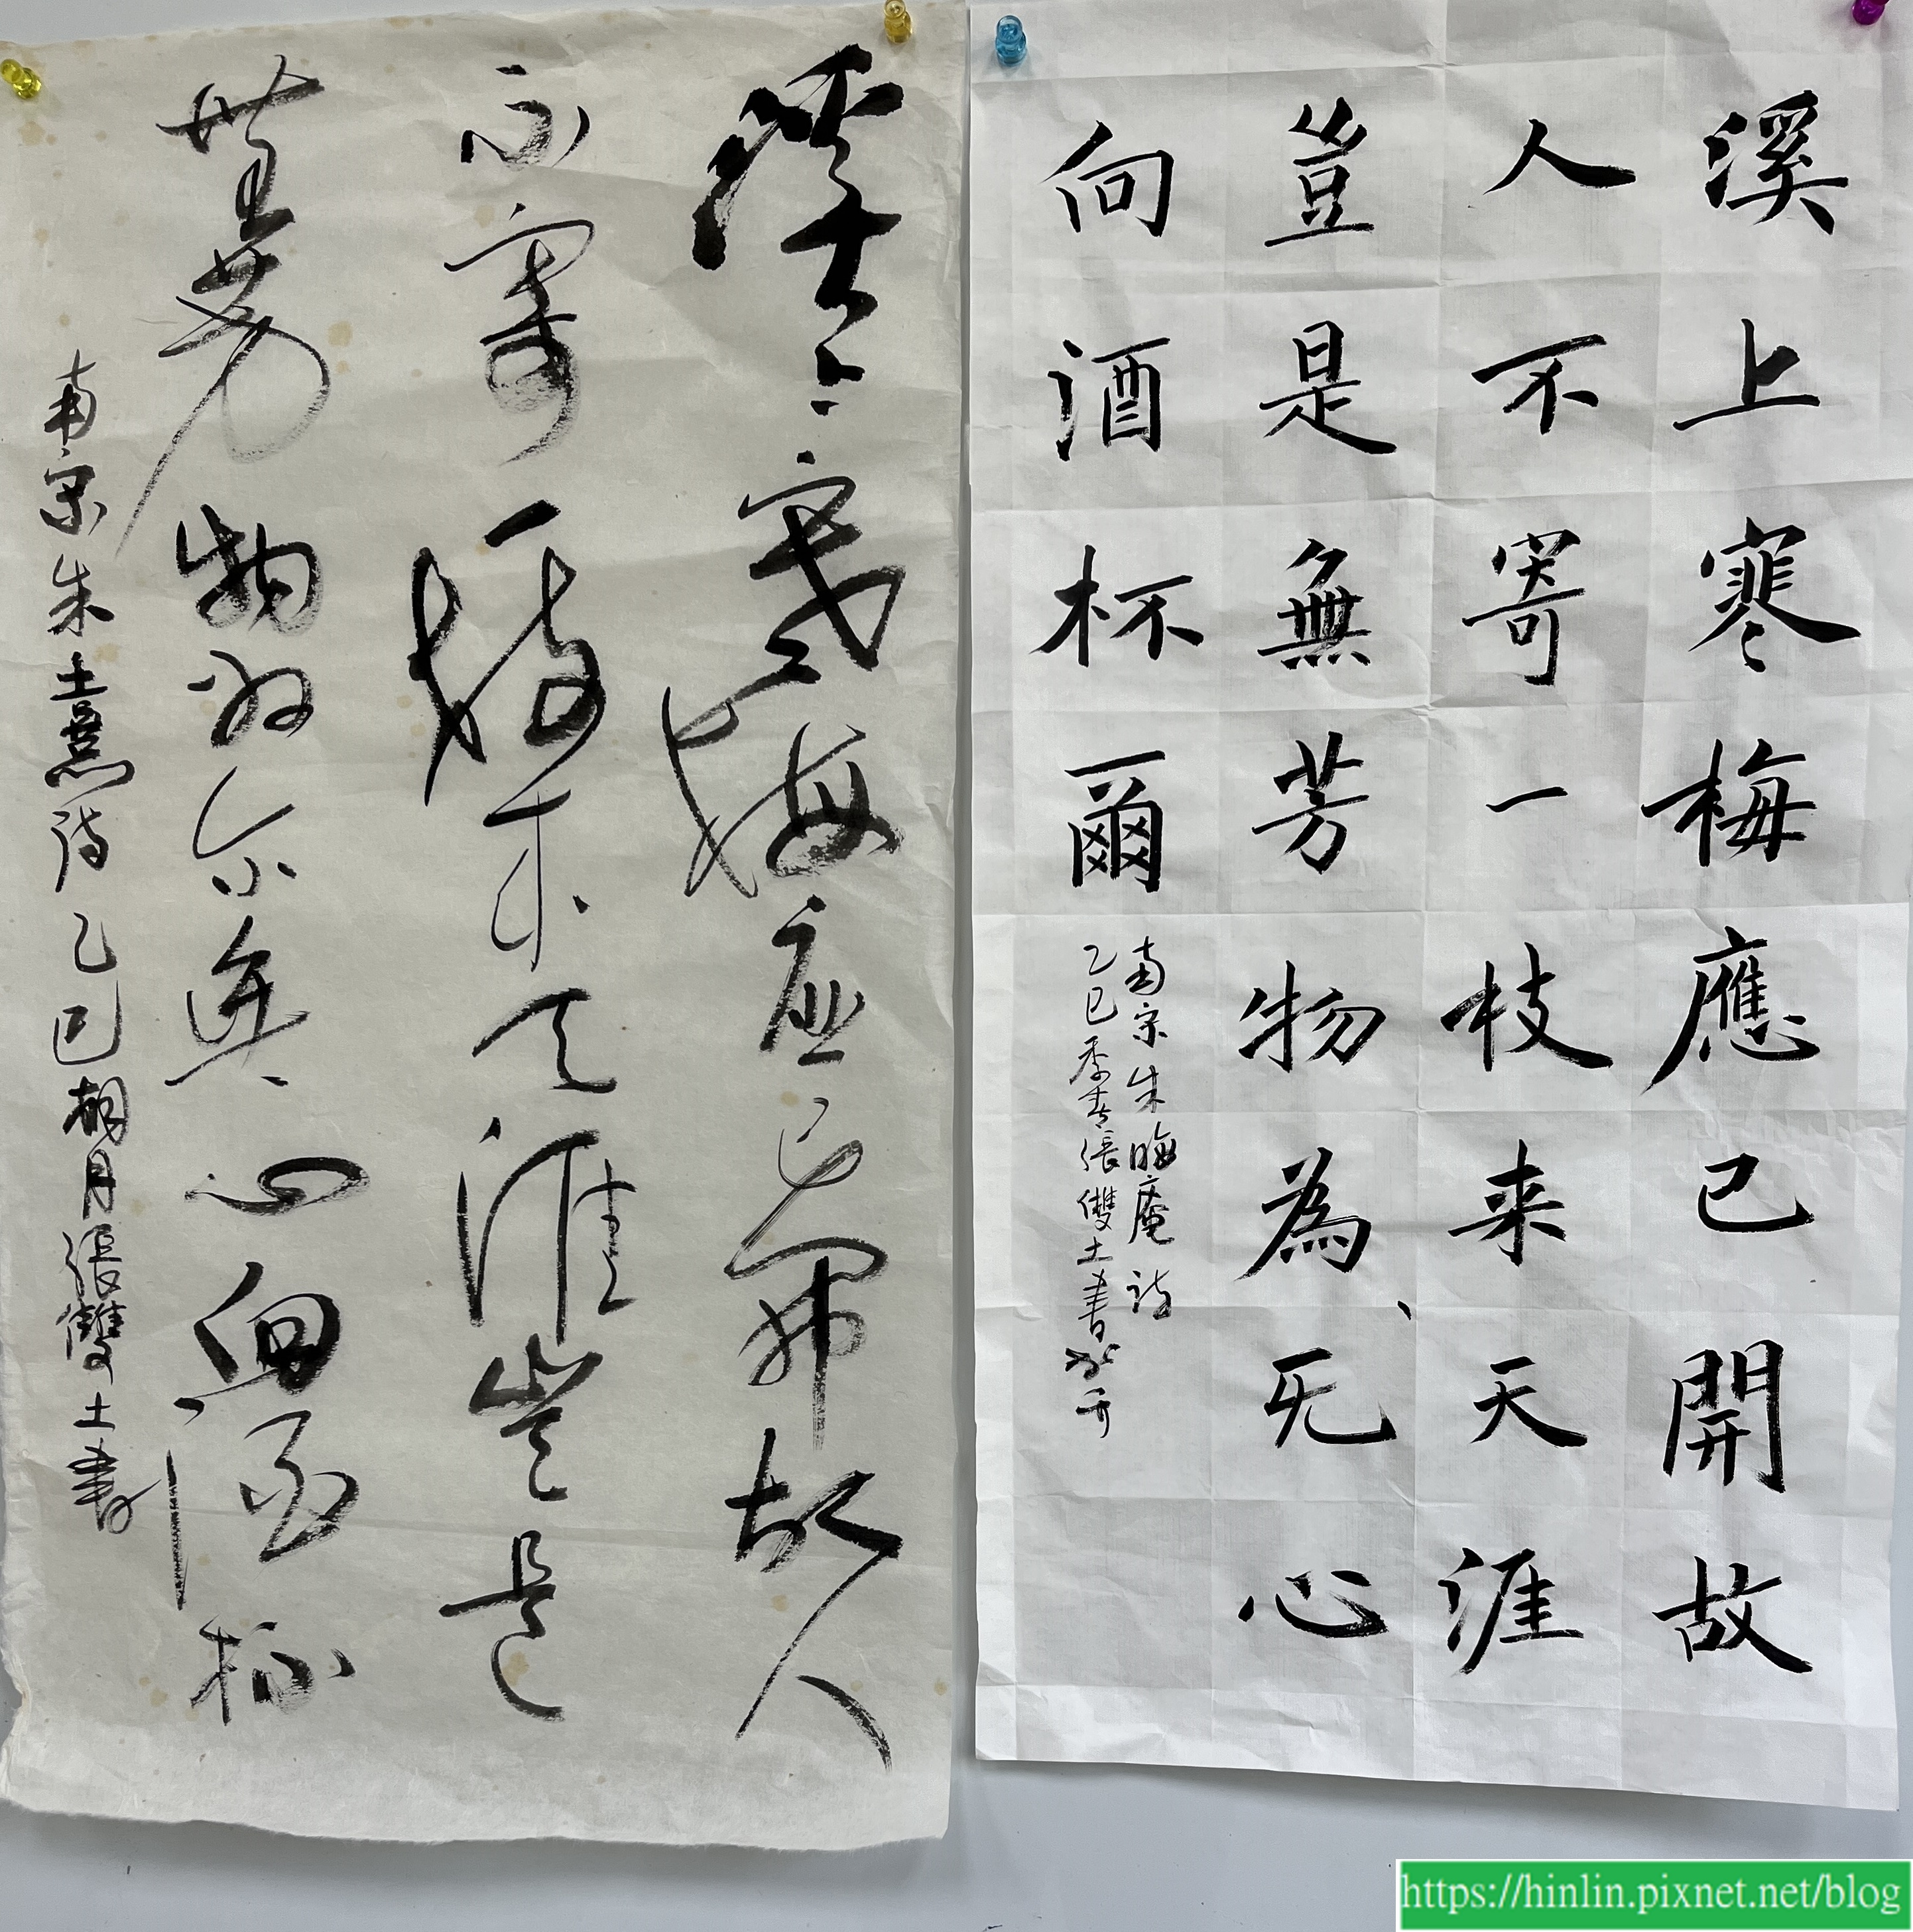 溪上寒梅應已開故
人不寄一枝来天涯
豈是無芳物為、无心
向酒杯爾
南宋朱晦庵詩
乙巳季春張雙土書
溪上寒梅應已開故人
不寄一枝来天涯豈是
無芳物為尔無心向酒杯
南宋朱熹詩乙巳桐月張雙土書
https://hinlin.pixnet.net/blog